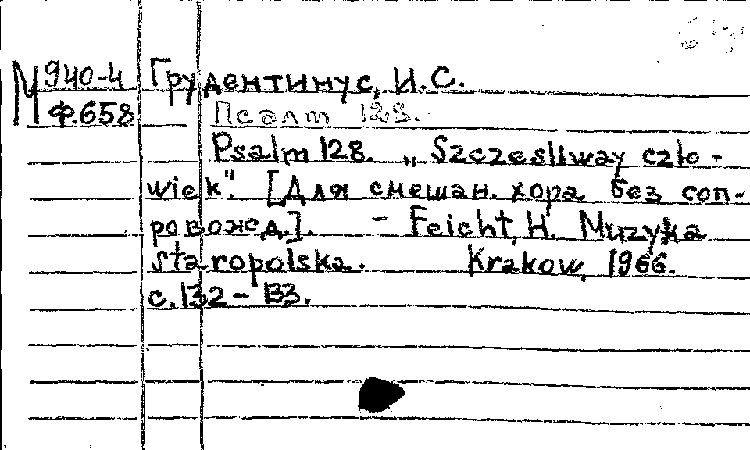 М 940-4 Грудентинус, И.С.
Ф.658 Псалм 128.
Psalm 128. „Szczesliway czlo-
wiek". [Для смешан. хора без соп-
ровожд.]. - Feicht, H. Muzyka
staropolska. Krakow, 1966.
с.132-133.